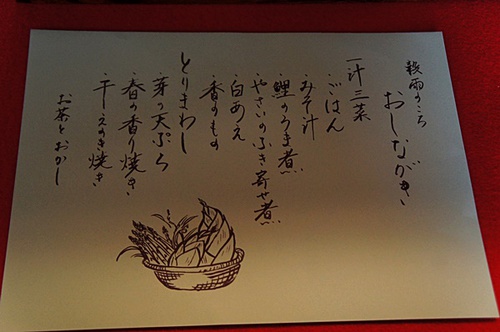 穀雨のころ
おしながき
一汁三菜
・ごはん
・みそ汁
・鯉のうま煮
・やさいのふき寄せ煮
・白あえ
・香のもの
とりまわし
・芽の天ぷら
・春の香り焼き
・干しえのき焼き
お茶とおかし